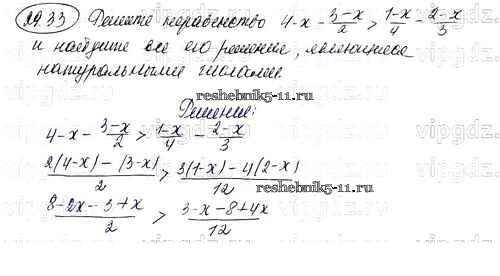 29.33 Решите неравенство 4-x - \frac{3-x}{2} > \frac{1-x}{4} - \frac{2-x}{3}
и найдите все его решения, являющиеся
натуральными числами.
Решение:
reshebnik5-11.ru
4-x - \frac{3-x}{2} > \frac{1-x}{4} - \frac{2-x}{3}
\frac{2(4-x) - (3-x)}{2} > \frac{3(1-x) - 4(2-x)}{12}
reshebnik5-11.ru
\frac{8-2x-3+x}{2} > \frac{3-x-8+4x}{12}
vipgdz.